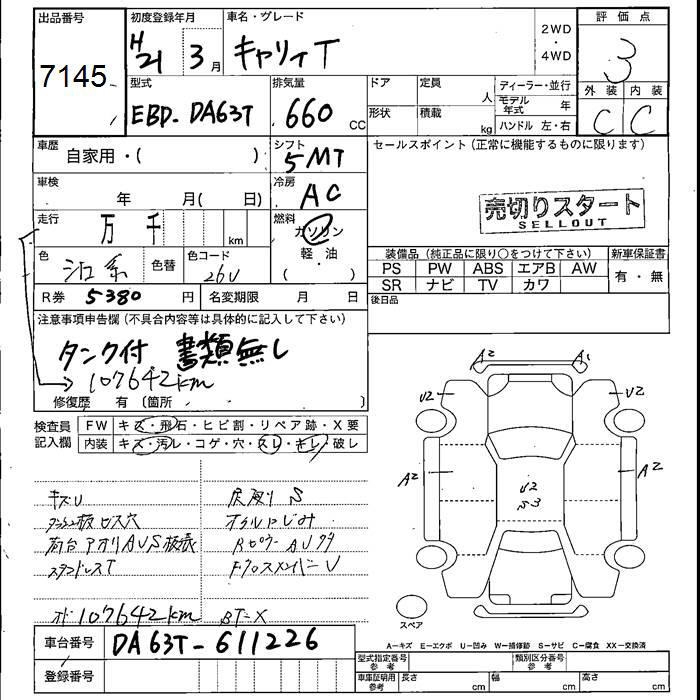 出品番号
7145
初度登録年月
H21 3月
車名・グレード
キャリイT
2WD
・
4WD
評価点
3
外装 内装
C C
型式
EBD-DA63T
排気量
660 CC
ドア
形状
定員 人
積載 kg
ディーラー・並行
モデル年式 年
ハンドル 左・右
車歴 自家用・( )
シフト
5MT
車検 年 月( 日)
冷房
AC
走行 万 千 km
燃料
ガソリン
軽・油
( )
色
色替
色コード
26U
R券 5380 円
名変期限 月 日
セールスポイント (正常に機能するものに限ります)
売切りスタート
SELLOUT
装備品 (純正品に限り○をつけて下さい)
新車保証書
PS PW ABS エアB AW
有・無
SR ナビ TV カワ
後日品
注意事項申告欄 (不具合内容等は具体的に記入して下さい)
タンク付 書類無し
107642km
修復歴 有 (箇所 )
検査員
記入欄
FW キズ・飛石・ヒビ割・リペア跡・X要
内装 キズ・汚レ・コゲ・穴・スレ・キレ・破レ
キズU
荷台アオリAUS
スタッドレスT
107642km
BT-X
A2
A1
U2
U2
A2
A2
U2
S3
スペア
A-キズ E-エクボ U-凹み W-補修跡 S-サビ C-腐食 XX-交換済
車台番号 DA63T-611226
登録番号
型式指定番号
参考
類別区分番号
参考
車庫証明用
参考
長さ cm
幅 cm
高さ cm